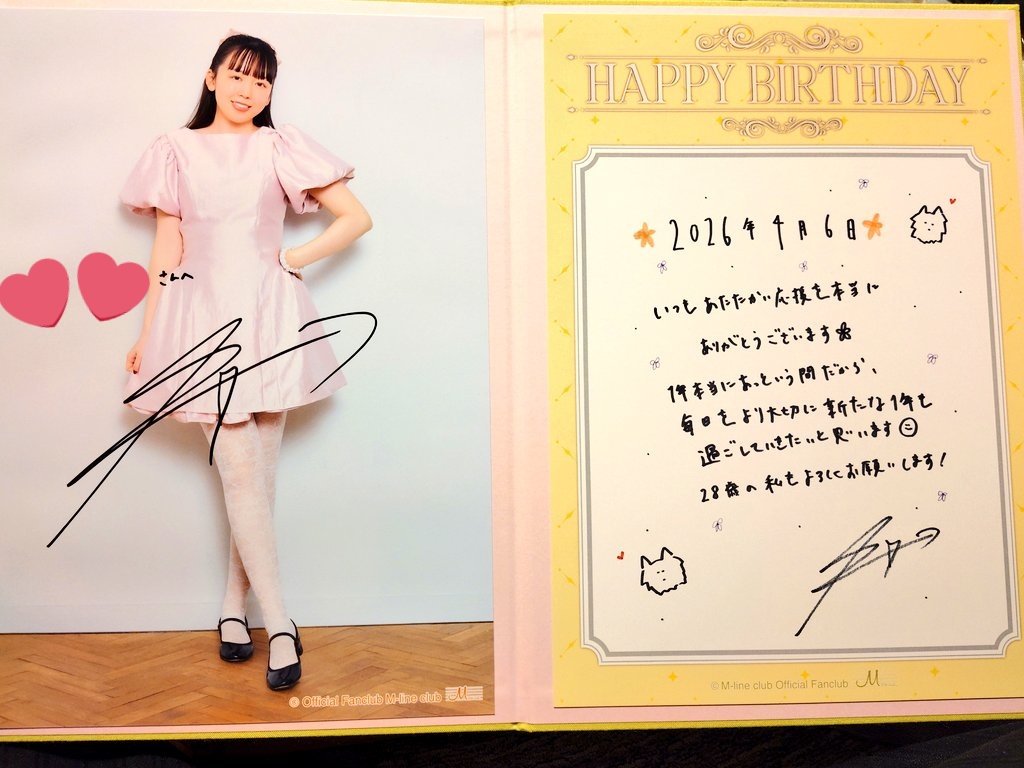 さんへ
© Official Fanclub M-line club M
HAPPY BIRTHDAY
2026年4月6日
いつもあたたかい応援を本当に
ありがとうございます
1年本当にあっという間だから、
毎日をより大切に新たな1年を
過ごしていきたいと思います
28歳の私もよろしくお願いします!
© M-line club Official Fanclub M